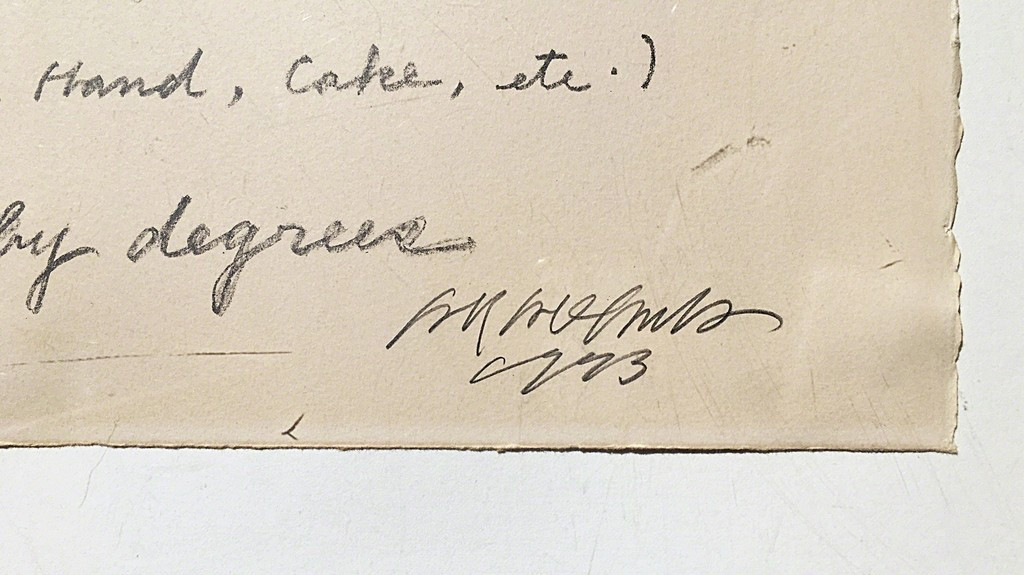 Hand, Cake, etc.)
by degrees
1973